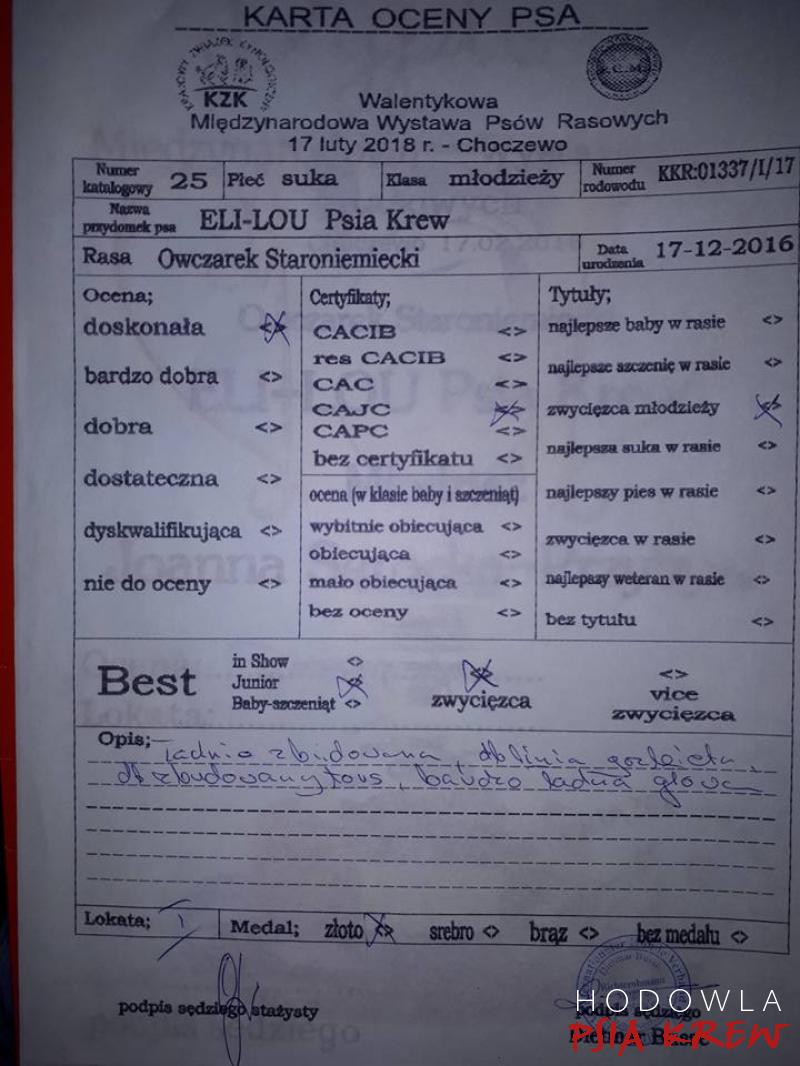 KARTA OCENY PSA
KZK
Walentykowa
Międzynarodowa Wystawa Psów Rasowych
17 luty 2018 r. - Choczewo
Numer katalogowy 25 Płeć suka Klasa młodzieży Numer rodowodu KKR:01337/I/17
Nazwa przydomek psa ELI-LOU Psia Krew
Rasa Owczarek Staroniemiecki Data urodzenia 17-12-2016
Ocena;
doskonała <>
bardzo dobra <>
dobra <>
dostateczna <>
dyskwalifikująca <>
nie do oceny <>
Certyfikaty;
CACIB <>
res CACIB <>
CAC <>
CAJC <>
CAPC <>
bez certyfikatu <>
ocena (w klasie baby i szczeniąt)
wybitnie obiecująca <>
obiecująca <>
mało obiecująca <>
bez oceny <>
Tytuły;
najlepsze baby w rasie <>
najlepsze szczenię w rasie <>
zwycięzca młodzieży <>
najlepsza suka w rasie <>
najlepszy pies w rasie <>
zwycięzca w rasie <>
najlepszy weteran w rasie <>
bez tytułu <>
Best
in Show <>
Junior <>
Baby-szczeniąt <>
<> zwycięzca
<> vice zwycięzca
Opis;
ładnie zbudowana, db linia
db zbudowany, bardzo ładna głowa
Lokata; I Medal; złoto <> srebro <> brąz <> bez medalu <>
podpis sędziego stażysty
podpis sędziego
Dietmar Busse
HODOWLA
PSIA KREW